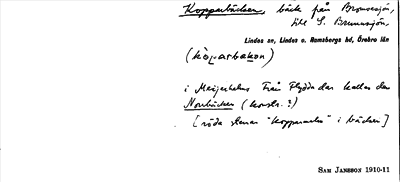 Kopparbäcken, bäck från Bromsesjön,
till S. Brunnsjön,
Lindes sn, Lindes o. Ramsbergs bd, Örebro län
(kòparbakon)
i Från Flydda den kallas den
Norrbäcken (konstr.?)
[röda stenar "kopparmalm" i bäcken]
SAM JANSSON 1910-11